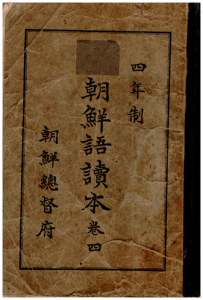 四年制
朝鮮語讀本 卷四
朝鮮總督府